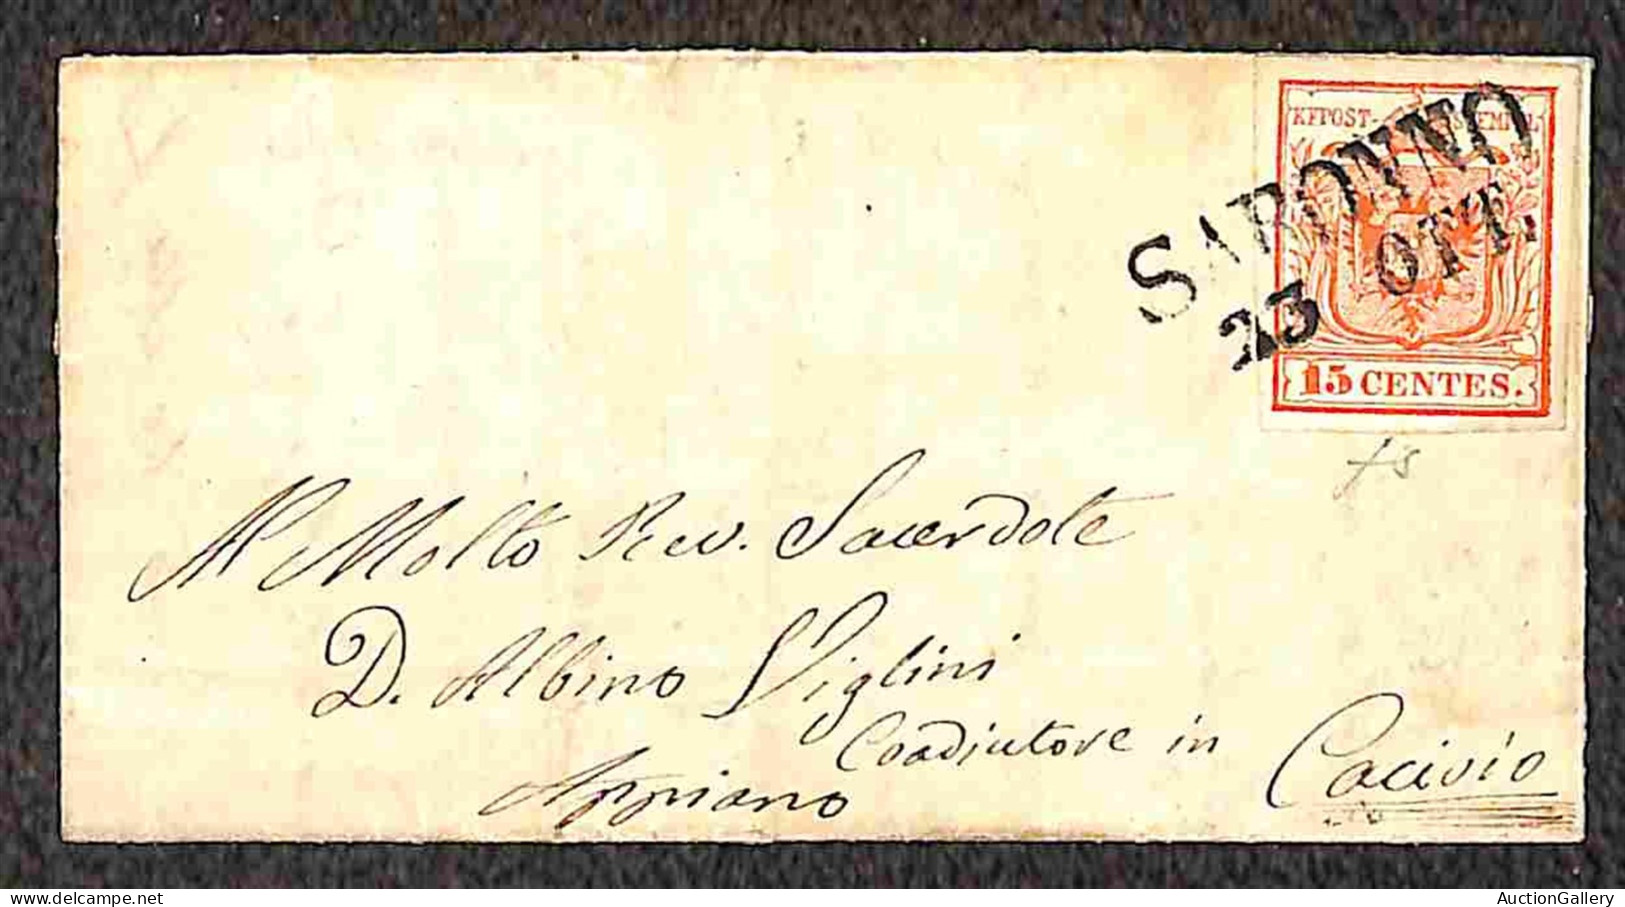 KFPOST-
SARONNO
23 OTT.
15 CENTES.
fs
Al Molto Rev. Sacerdote
D. Albino Viglini
Coadiutore in Cacivio
Appiano
www.delcampe.net
AuctionGallery